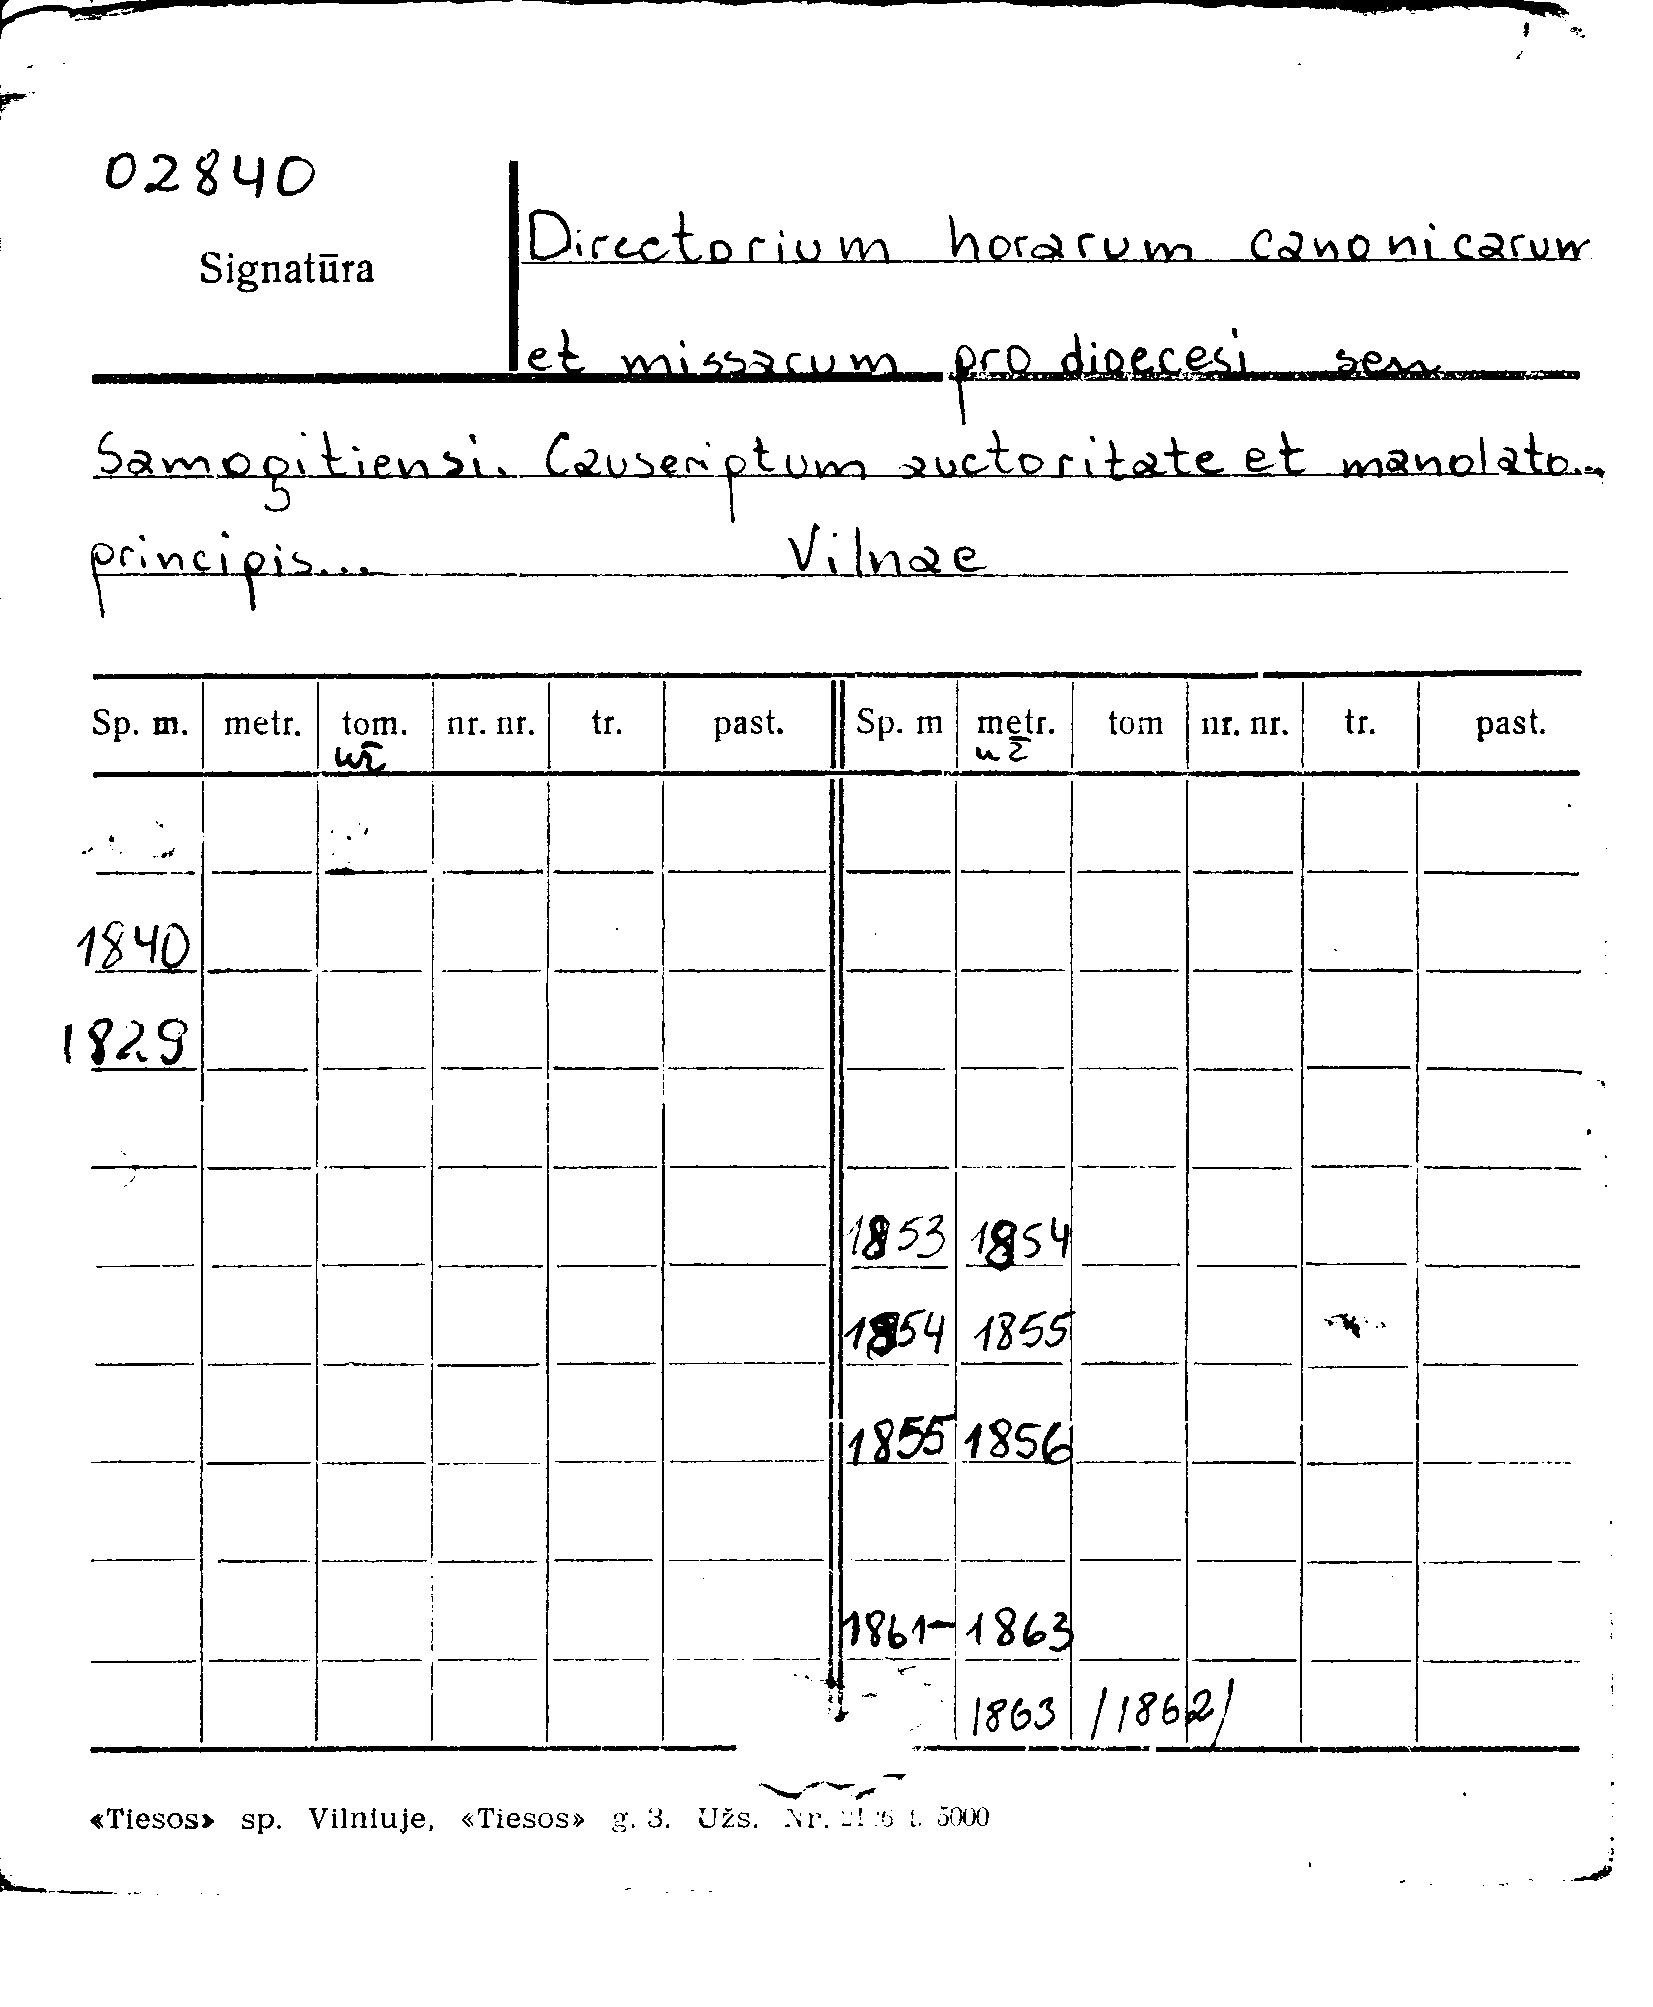 02840
Signatūra
Directorium horarum canonicarum
et missarum pro dioecesi seu
Samogitiensi. Causeriptum auctoritate et manolato...
principis... Vilnae
Sp. m. metr. tom. nr. nr. tr. past. Sp. m metr. tom nr. nr. tr. past.
už už
1840
1829
1853 1854
1854 1855
1855 1856
1861- 1863
1863 /1862/
«Tiesos» sp. Vilniuje, «Tiesos» g. 3. Užs. Nr. t. 5000